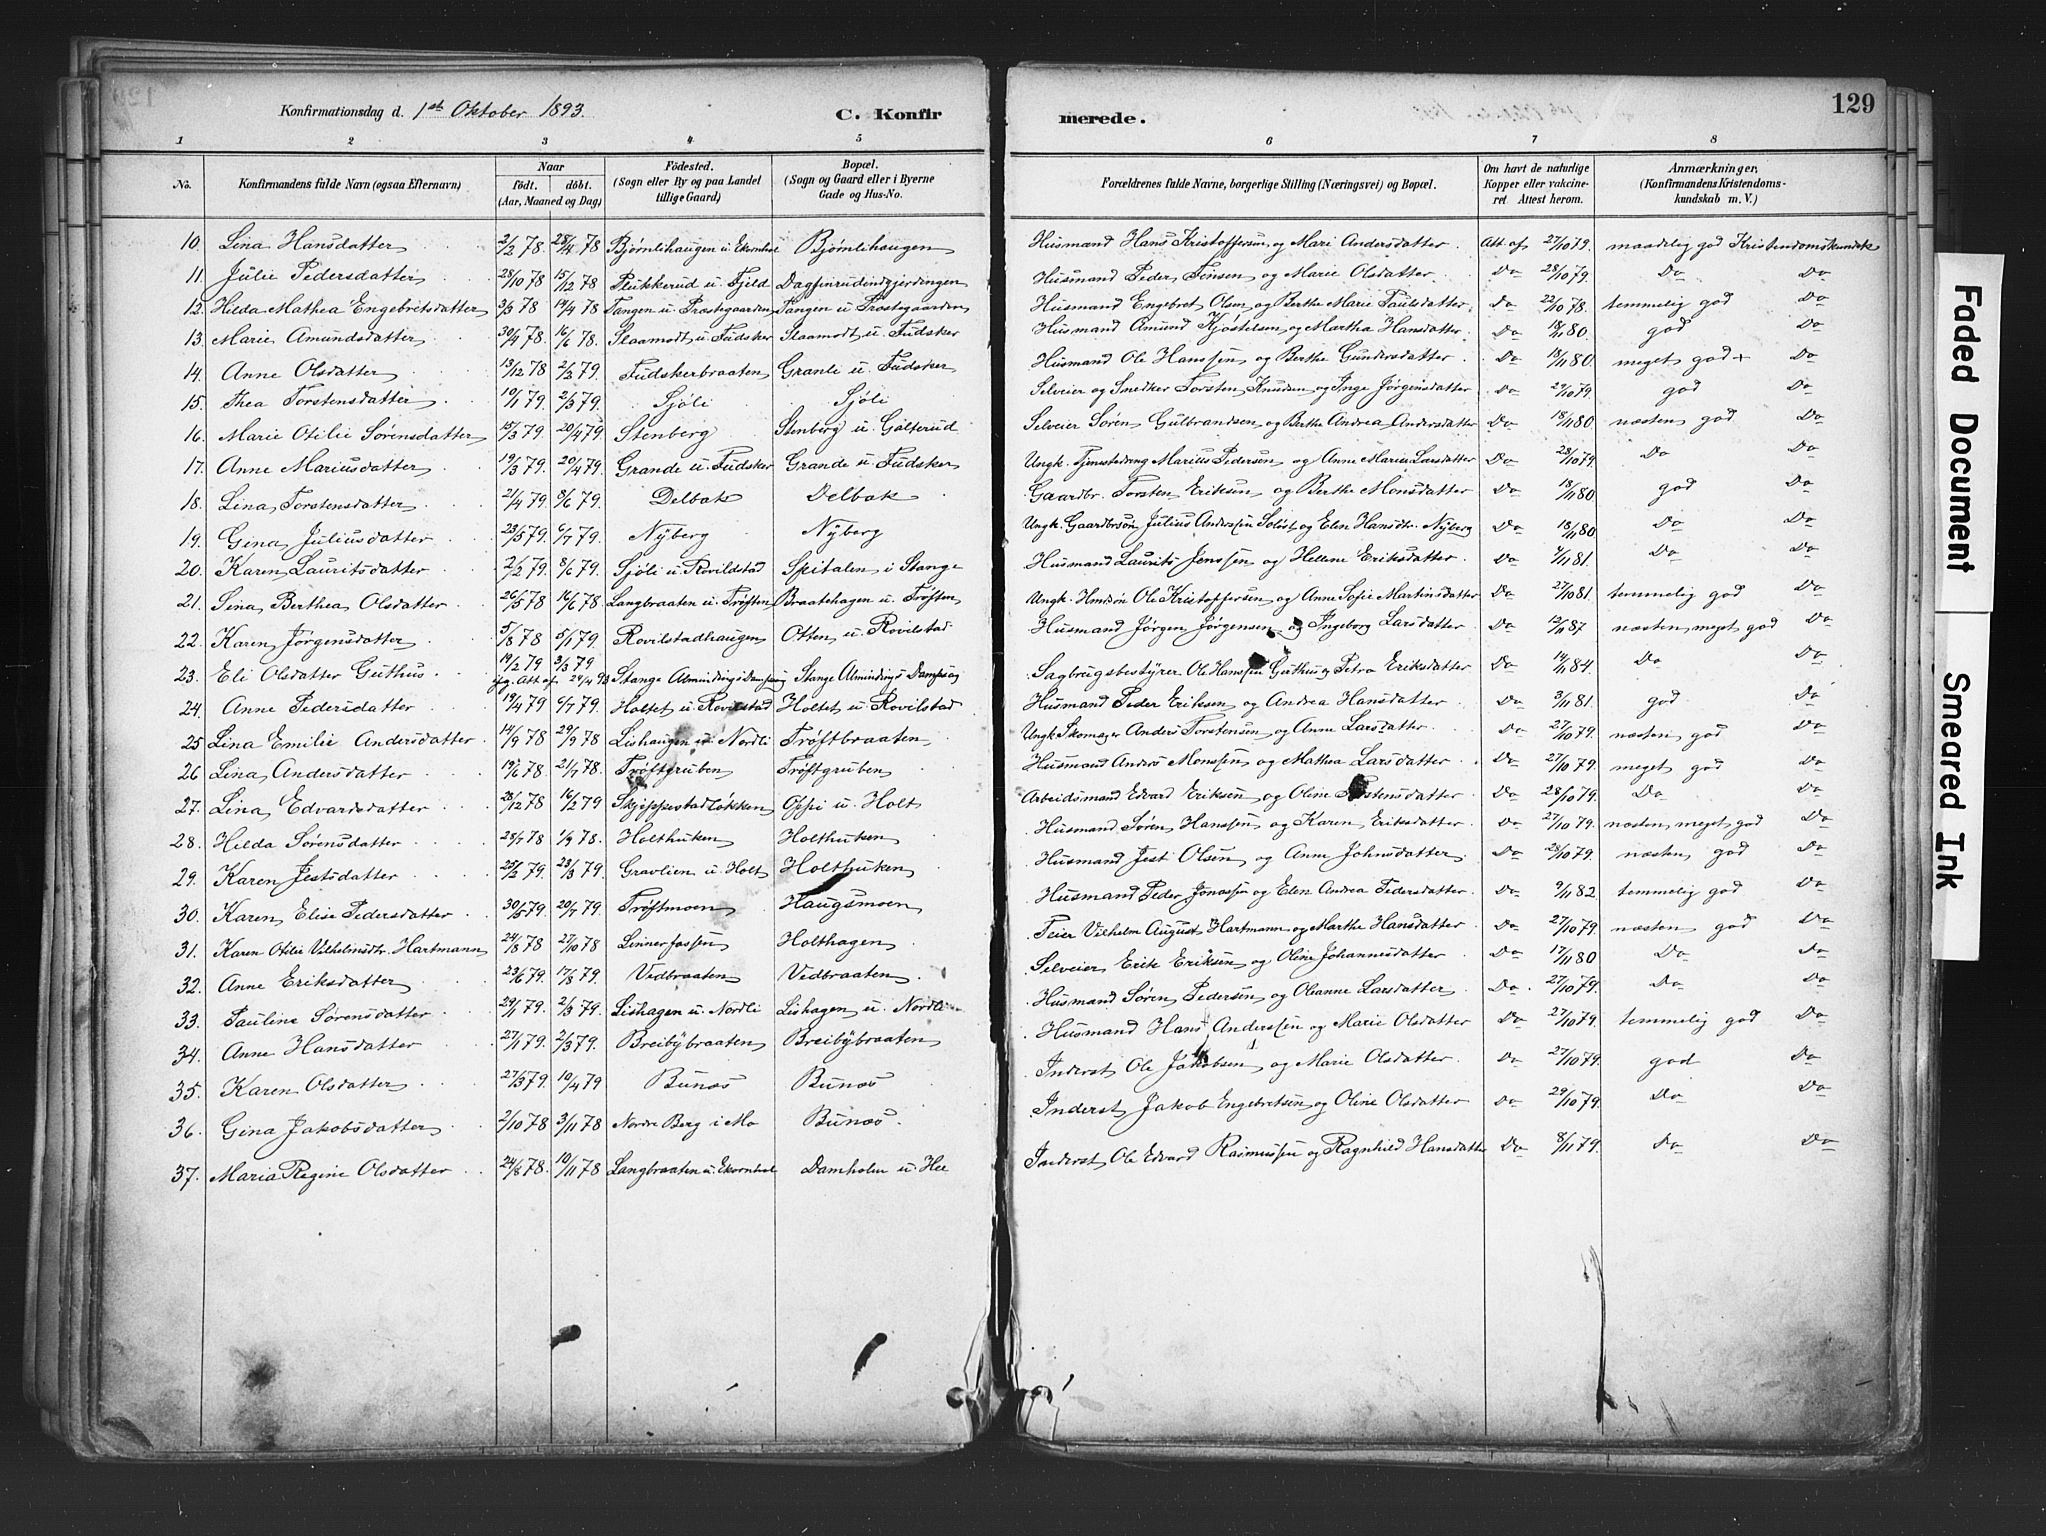 Konfirmationsdag d. 1ste Oktober 1893. C. Konfir
merede. 129
1 2 3 4 5 6 7 8
No. Konfirmandens fulde Navn (ogsaa Efternavn) Naar født. døbt. (Aar, Maaned og Dag) Fødested. (Sogn eller By og paa Landet tillige Gaard) Bopæl. (Sogn og Gaard eller i Byerne Gade og Hus-No. Forældrenes fulde Navne, borgerlige Stilling (Næringsvei) og Bopæl. Om havt de naturlige Kopper eller vakcineret Attest herom. Anmærkninger, (Konfirmandens Kristendomskundskab m. V.)
10. Lina Hansdatter 2/2 78 28/4 78 Bjørnlihaugen u. Ekornhol Bjørnlihaugen Husmand Hans Kristoffersen og Mari Andersdatter Att af 27/10 79. maadelig god Kristendomskundsk
11. Julie Pedersdatter 28/10 78 15/12 78 Plukkerud u. Fjeld Dagfinrudindgjerdingen Husmand Peder Jensen og Marie Olsdatter Do 28/10 79. Do Do
12. Hilda Mathea Engebretsdatter 3/3 78 14/4 78 Tangen u. Prostegaarden Tangen u. Prostegaarden Husmand Engebret Olsen og Berthe Marie Paulsdatter Do 22/10 78. temmelig god Do
13. Marie Amundsdatter 30/4 78 16/6 78. Slaamodt u. Fudsker Slaamodt u. Fudsker Husmand Amund Kjøstelsen og Martha Hansdatter Do 18/11 80. god Do
14. Anne Olsdatter 13/12 78 2/2 79. Fudskerbraaten Granli u. Fudsker Husmand Ole Hanssen og Berthe Gundersdatter Do 18/11 80 meget god + Do
15. Thea Torstensdatter 10/1 79. 2/3 79. Sjøli Sjøli Selveier og Snedker Torsten Knudsen og Inge Jørgensdatter Do 29/10 79. god Do
16. Marie Otilie Sørensdatter 15/3 79 20/4 79. Stenberg Stenberg u. Gålterud Selveier Søren Gulbrandsen og Berthe Andrea Andersdatter Do 18/11 80. næsten god Do
17. Anne Mariusdatter 19/3 79. 20/4 79. Grande u. Fudsker Grande u. Fudsker Ungk. Tjenestedreng Marius Pedersen og Anne Marie Larsdatter Do 28/10 79. Do Do
18. Lina Torstensdatter 21/4 79. 8/6 79. Delbak Delbak Gaardbr. Torsten Eriksen og Berthe Monsdatter Do 18/11 80 god Do
19. Gina Juliusdatter 23/5 79. 6/7 79. Nyberg Nyberg Ungk. Gaardbrsøn Julius Anderssen Solist og Elen Hansdtr. Nyberg Do 18/11 80 Do Do
20. Karen Lauritsdatter 2/2 79. 8/6 79. Sjöli u. Rovildstad Spitalen i Stange Husmand Laurits Jenssen og Hellene Eriksdatter Do 4/11 81. Do Do
21. Sina Berthea Olsdatter 26/5 78 16/6 78. Langbraaten u. Trøften Braatehagen u. Trøften Ungk. Hmdsøn Ole Kristoffersen og Anne Sofie Martinsdatter Do 27/10 81. temmelig god Do
22. Karen Jørgensdatter 5/8 78 5/1 79. Rovilstadhaugen Otten u. Rovilstad Husmand Jørgen Jørgensen og Ingeborg Larsdatter Do 12/11 87 næsten meget god Do
23. Eli Olsdatter Guthus 19/2 79 3/3 79 Stange Almindings Dampsag Stange Almindings Dampsag Sagbrugsbestyrer Ole Hanssen Guthus og Petra Eriksdatter Do 14/11 84. Do Do
jfg. Att af 24/4 93
24. Anne Pedersdatter 19/4 79 6/7 79. Holtet u. Rovilstad Holtet u. Rovilstad Husmand Peder Eriksen og Andrea Hansdatter Do 3/11 81. god Do
25 Lina Emilie Andersdatter 14/9 78 29/9 78 Lishaugen u. Nordli Trøftbraaten Ungk. Skomager Anders Torstensen og Anne Larsdatter Do 27/10 79. næsten god Do
26 Lina Andersdatter 19/6 78. 21/7 78. Trøftgruben Trøftgruben Husmand Anders Monssen og Mathea Larsdatter Do 27/10 79. meget god Do
27. Lina Edvardsdatter 28/12 78 16/2 79 Skjøppestadløkken Oppi u. Holt Arbeidsmand Edvard Eriksen og Oline Torstensdatter Do 28/10 79. Do Do
28. Hilda Sørensdatter 28/7 78 1/9 78. Holthuken Holthuken Husmand Søren Hanssen og Karen Eriksdatter Do 27/10 79. næsten meget god Do
29. Karen Jestsdatter 25/2 79. 23/3 79. Gravlien u. Holt Holthuken Husmand Jest Olsen og Anne Johnsdatter Do 28/10 79. næsten god Do
30. Karen Elise Pedersdatter 30/5 79. 20/7 79. Trøftmoen Haugsmoen Husmand Peder Jonassen og Elen Andrea Pedersdatter Do 9/11 82 temmelig god Do
31. Karen Otilie Vilhelmsdtr. Hartmann 24/8 78 27/10 78 Linnerfossen Holthagen Feier Vilhelm August Hartmann og Marthe Hansdatter Do 27/10 79. næsten god Do
32. Anne Eriksdatter 23/6 79. 17/8 79 Vedbraaten Vedbraaten Selveier Erik Eriksen og Oline Johannesdatter Do 17/11 80 Do Do
33. Pauline Sørensdatter 29/1 79. 2/3 79. Lishagen u. Nordli Lishagen u. Nordli Husmand Søren Pedersen og Oleanne Larsdatter Do 27/10 79. Do Do
34. Anne Hansdatter 27/1 79. 2/3 79. Breibybraaten Breibybraaten Husmand Hans Anderssen og Marie Olsdatter Do 27/10 79. temmelig god Do
35. Karen Olsdatter 27/3 79. 10/4 79 Bunæs Bunæs Inderst Ole Jakobsen og Marie Olsdatter Do 27/10 79. god Do
36. Gina Jakobsdatter 2/10 78 3/11 78 Nordre Berg i Mo Bunæs. Inderst Jakob Engebretsen og Oline Olsdatter Do 29/10 79. Do Do
37. Maria Regine Olsdatter 24/8 78. 10/11 78 Langbraaten u. Ekornhol Damholen u. Hee Inderst Ole Edvard Rasmussen og Ragnhild Hansdatter Do 8/11 79. Do Do
Faded Document
Smeared Ink